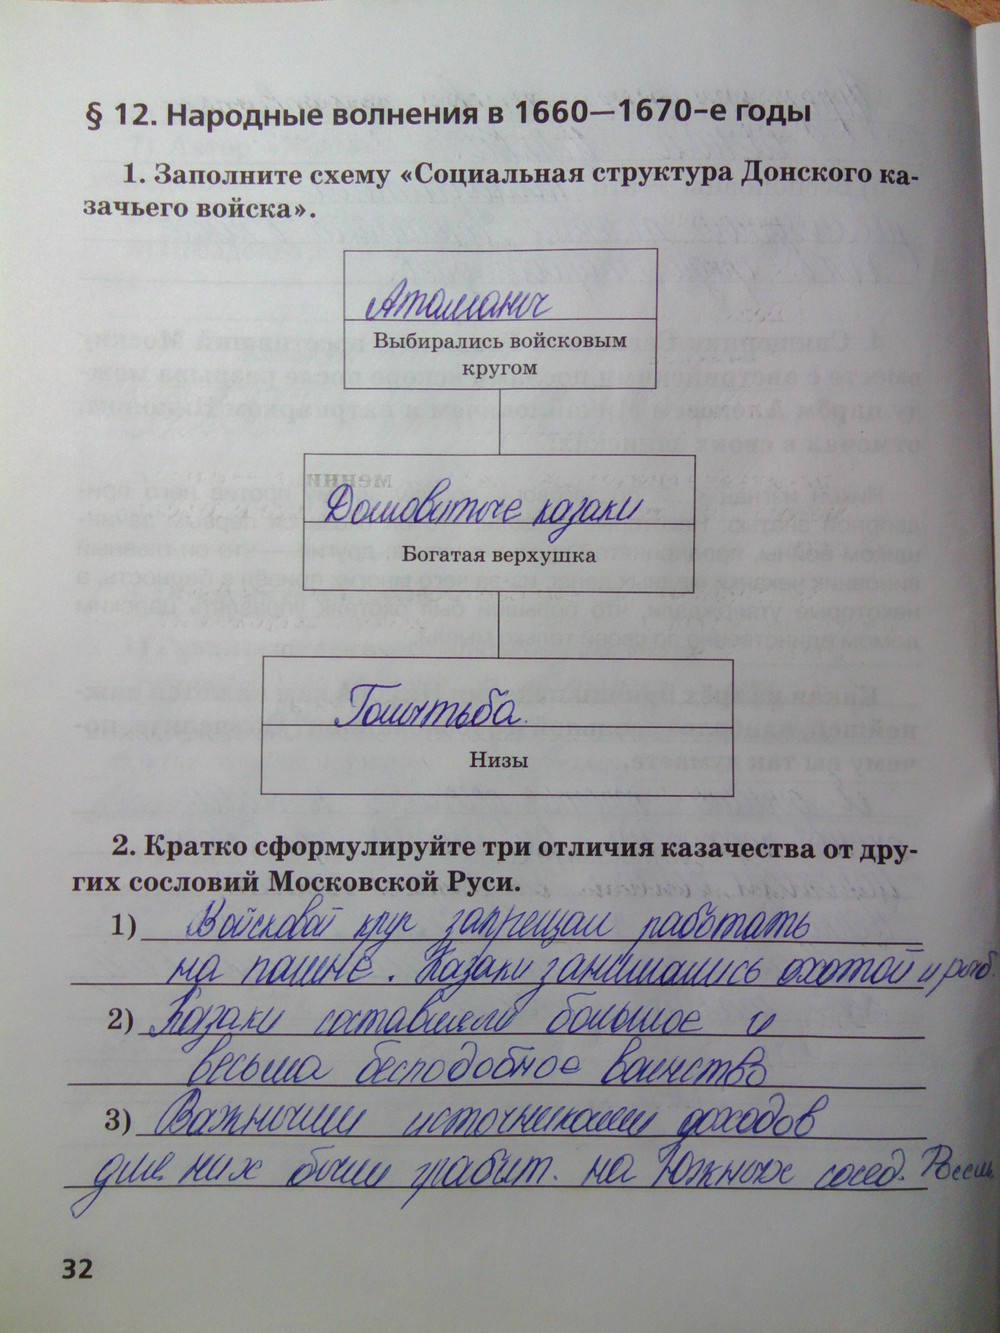 § 12. Народные волнения в 1660—1670-е годы
1. Заполните схему «Социальная структура Донского ка-
зачьего войска».
Атаманы
Выбирались войсковым
кругом
Домовитые казаки
Богатая верхушка
Голытьба
Низы
2. Кратко сформулируйте три отличия казачества от дру-
гих сословий Московской Руси.
1) Войсковой круг запрещал работать
на пашне. Казаки занимались охотой и рыб.
2) Казаки составляли большое и
весьма бесподобное воинство
3) Важными источниками доходов
для них были грабит. на Южных сосед. России
32